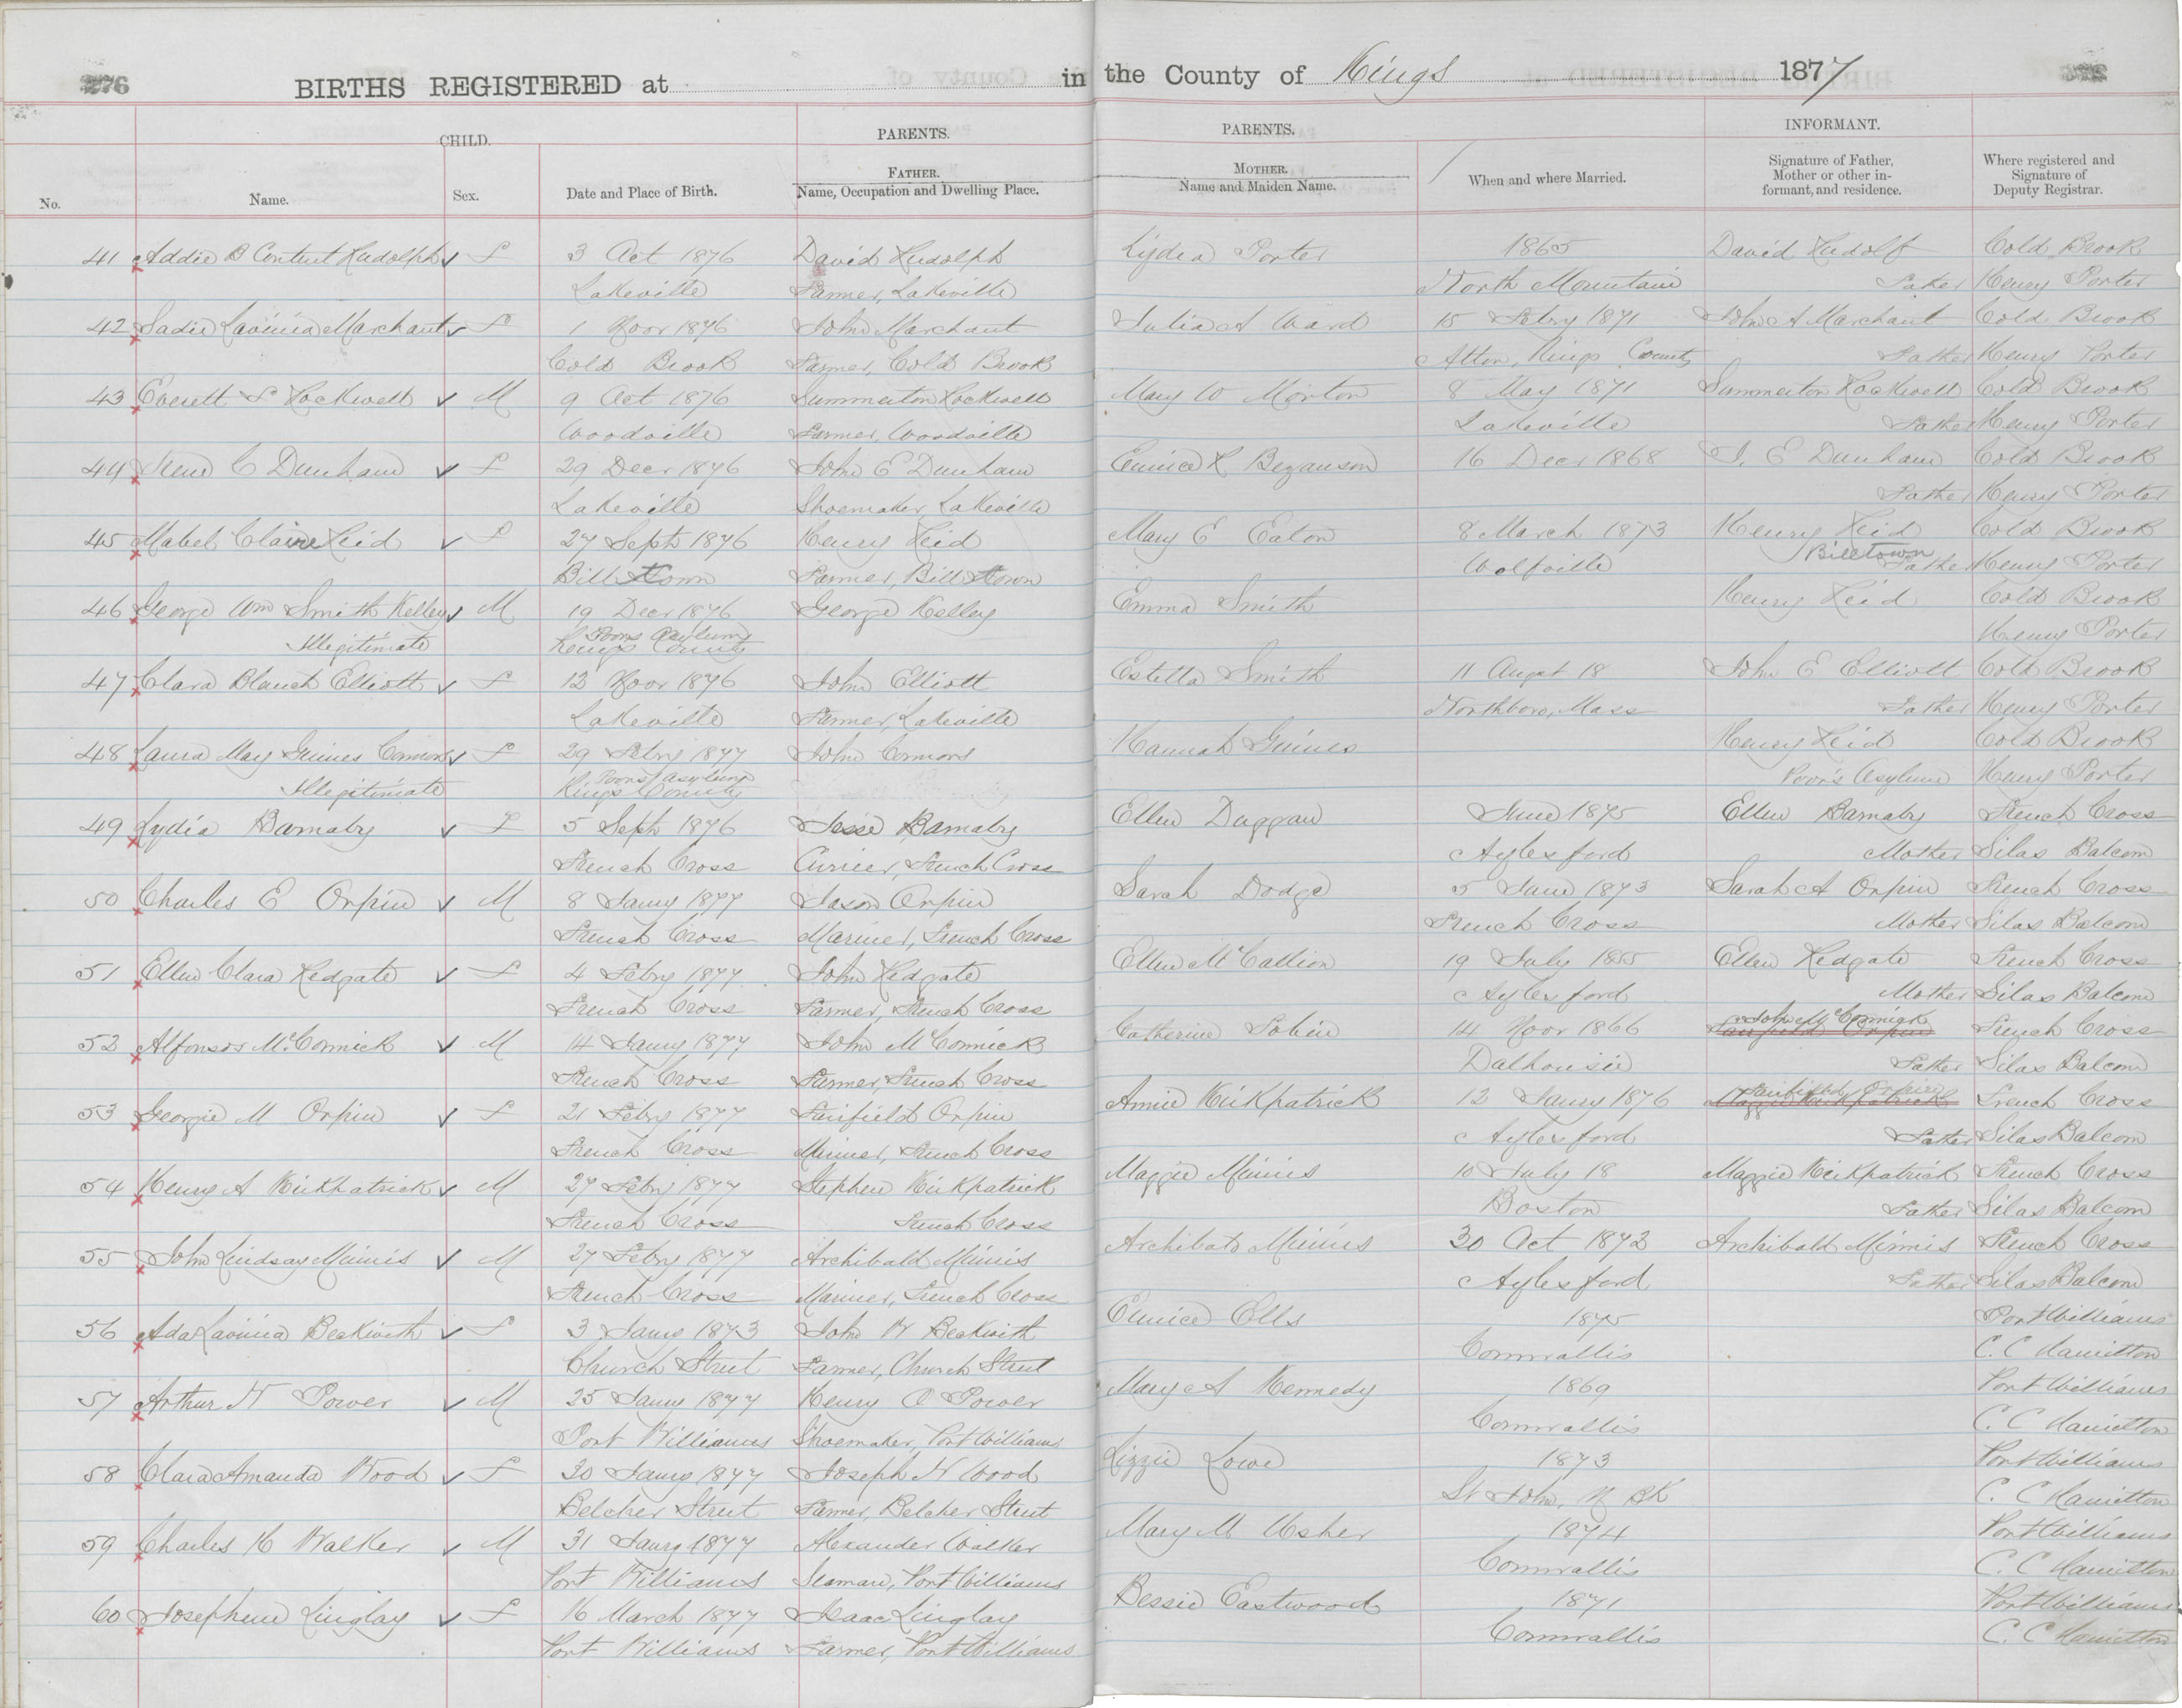 276
BIRTHS REGISTERED at in the County of Kings 1877
CHILD. PARENTS. PARENTS. INFORMANT.
No. Name. Sex. Date and Place of Birth. FATHER. Name, Occupation and Dwelling Place. MOTHER. Name and Maiden Name. When and where Married. Signature of Father, Mother or other informant, and residence. Where registered and Signature of Deputy Registrar.
41 Addie B Content Rudolph f 3 Oct 1876 David Rudolph Lydia Porter 1865 David Rudolf Cold Brook
Lakeville Farmer, Lakeville North Mountain Father Henry Porter
42 Sadie Lavinia Marchant f 1 Novr 1876 John Marchant Julia A Ward 15 Febry 1871 John A Marchant Cold Brook
Cold Brook Farmer, Cold Brook Alton, Kings County Father Henry Porter
43 Everett S Rockwell M 9 Oct 1876 Summerton Rockwell Mary W Morton 8 May 1871 Summerton Rockwell Cold Brook
Woodville Farmer, Woodville Lakeville Father Henry Porter
44 Irene C Dunham f 29 Decr 1876 John E Dunham Eunice R Bezanson 16 Decr 1868 J. E Dunham Cold Brook
Lakeville Shoemaker, Lakeville Father Henry Porter
45 Mabel Claire Reid f 27 Sept 1876 Henry Reid Mary E Eaton 8 March 1873 Henry Reid Cold Brook
Bill town Farmer, Bill town Wolfville Billtown Father Henry Porter
46 George Wm Smith Kelley M 19 Decr 1876 George Kelley Emma Smith Henry Reid Cold Brook
Illegitimate Poors Asylum Kings County Henry Porter
47 Clara Blanch Elliott f 12 Novr 1876 John Elliott Estella Smith 11 Augst 18 John E Elliott Cold Brook
Lakeville Farmer, Lakeville Northboro, Mass Father Henry Porter
48 Laura May Guines Connors f 29 Febry 1877 John Connors Hannah Guines Henry Reid Cold Brook
Illegitimate Poors Asylum Kings County Poor's Asylum Henry Porter
49 Lydia Barnaby f 5 Sept 1876 Jesse Barnaby Ellen Duggan June 1875 Ellen Barnaby French Cross
French Cross French Cross Aylesford Mother Silas Balcom
50 Charles E Orpin M 8 Jany 1877 Jason Orpin Sarah Dodge 5 June 1873 Sarah A Orpin French Cross
French Cross Mariner, French Cross French Cross Mother Silas Balcom
51 Ellen Clara Redgate f 4 Febry 1877 John Redgate Ellen McCallion 19 July 1855 Ellen Redgate French Cross
French Cross Farmer, French Cross Aylesford Mother Silas Balcom
52 Alfonsos McCormick M 14 Jany 1877 John McCormick Catherine Tobin 14 Novr 1866 John McCormick Fairfield Orpin French Cross
French Cross Farmer, French Cross Dalhousie Father Silas Balcom
53 Georgie M Orpin f 21 Febry 1877 Fairfield Orpin Annie Kirkpatrick 12 Jany 1876 Fairfield Orpin Maggie Kirkpatrick French Cross
French Cross Mariner, French Cross Aylesford Father Silas Balcom
54 Henry A Kirkpatrick M 27 Febry 1877 Stephen Kirkpatrick Maggie Minnis 10 July 18 Maggie Kirkpatrick French Cross
French Cross French Cross Boston Father Silas Balcom
55 John Lindsay Minnis M 27 Febry 1877 Archibald Minnis Archibald Minnis 30 Oct 1872 Archibald Minnis French Cross
French Cross Mariner, French Cross Aylesford Father Silas Balcom
56 Ada Lavinia Beckwith f 3 Jany 1873 John N Beckwith Eunice Ells 1875 Port Williams
Church Street Farmer, Church Street Cornwallis C. C Hamilton
57 Arthur N Power M 25 Jany 1877 Henry O Power Mary A Kennedy 1869 Port Williams
Port Williams Shoemaker, Port Williams Cornwallis C. C Hamilton
58 Clara Amanda Wood f 30 Jany 1877 Joseph N Wood Lizzie Lowe 1873 Port Williams
Belcher Street Farmer, Belcher Street St John, N BK C. C Hamilton
59 Charles H Walker M 31 Jany 1877 Alexander Walker Mary M Usher 1874 Port Williams
Port Williams Seaman, Port Williams Cornwallis C. C Hamilton
60 Josephine Linglay f 16 March 1877 Isaac Linglay Bessie Eastwood 1871 Port Williams
Port Williams Farmer, Port Williams Cornwallis C. C Hamilton